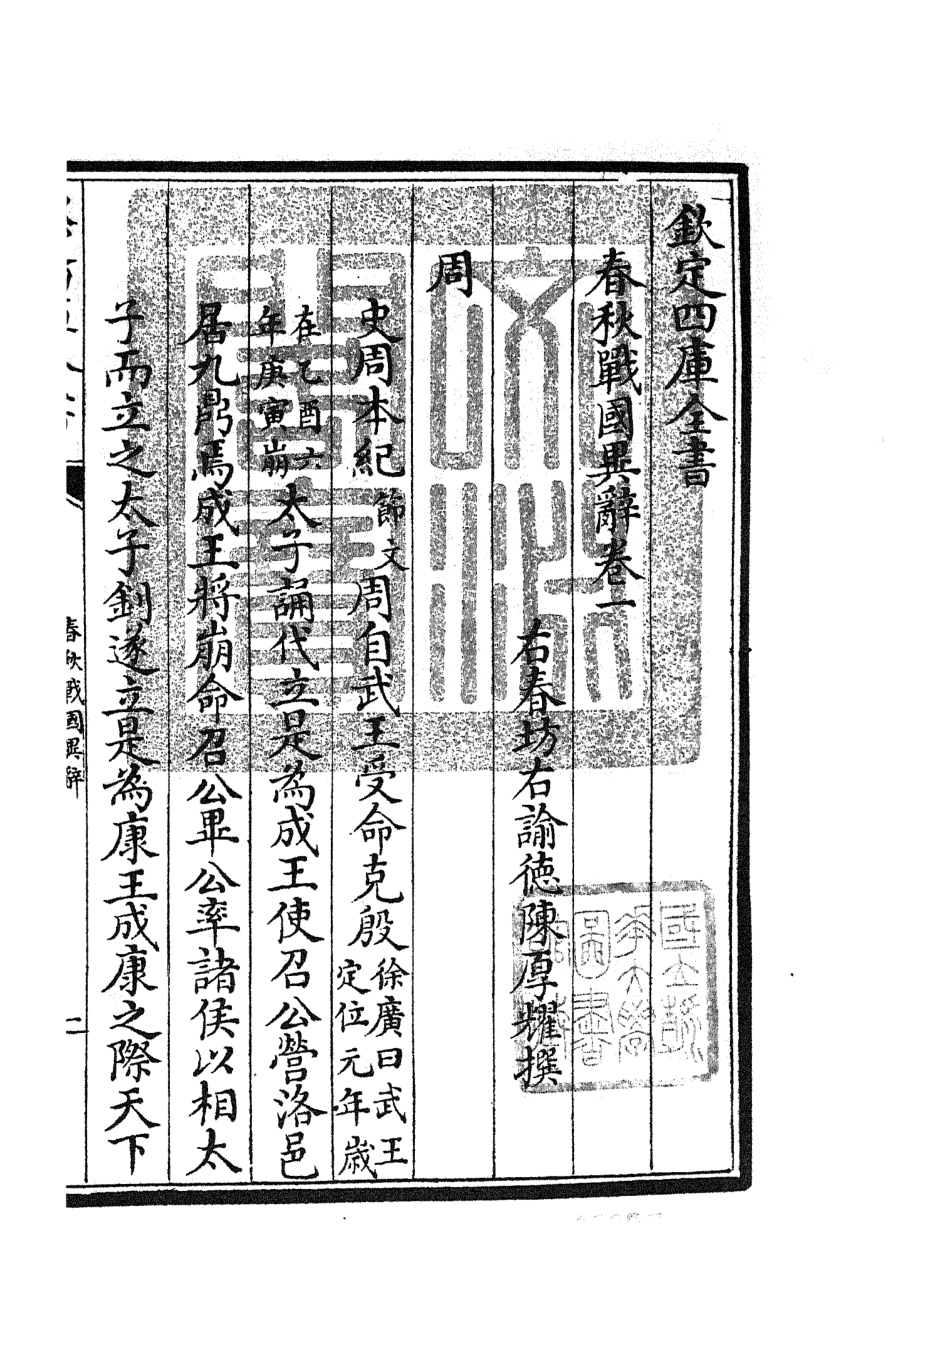 欽定四庫全書
春秋戰國異辭卷一
右春坊右諭徳陳厚耀撰
周
史周本紀節文周自武王受命克殷徐廣曰武王定位元年歳
在乙酉六年庚寅崩太子誦代立是為成王使召公營洛邑
居九鼎焉成王將崩命召公畢公率諸侯以相太
子而立之太子釗遂立是為康王成康之際天下
春秋戰國異辭